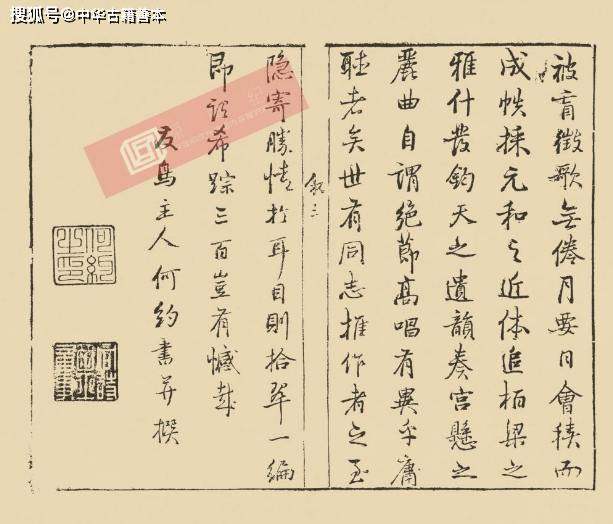 搜狐号@中华古籍善本
被肓徵歌無倦月要日會積而
成帙採元和之近体追栢梁之
雅什發鈞天之遺韻奏宫懸之
麗曲自謂絶節髙唱有異乎庸
聴者矣世有同志推作者之至
叙三
隐寄勝情於耳目則拾翠一編
即詎希踪三百豈有憾哉
主人何約書并撰